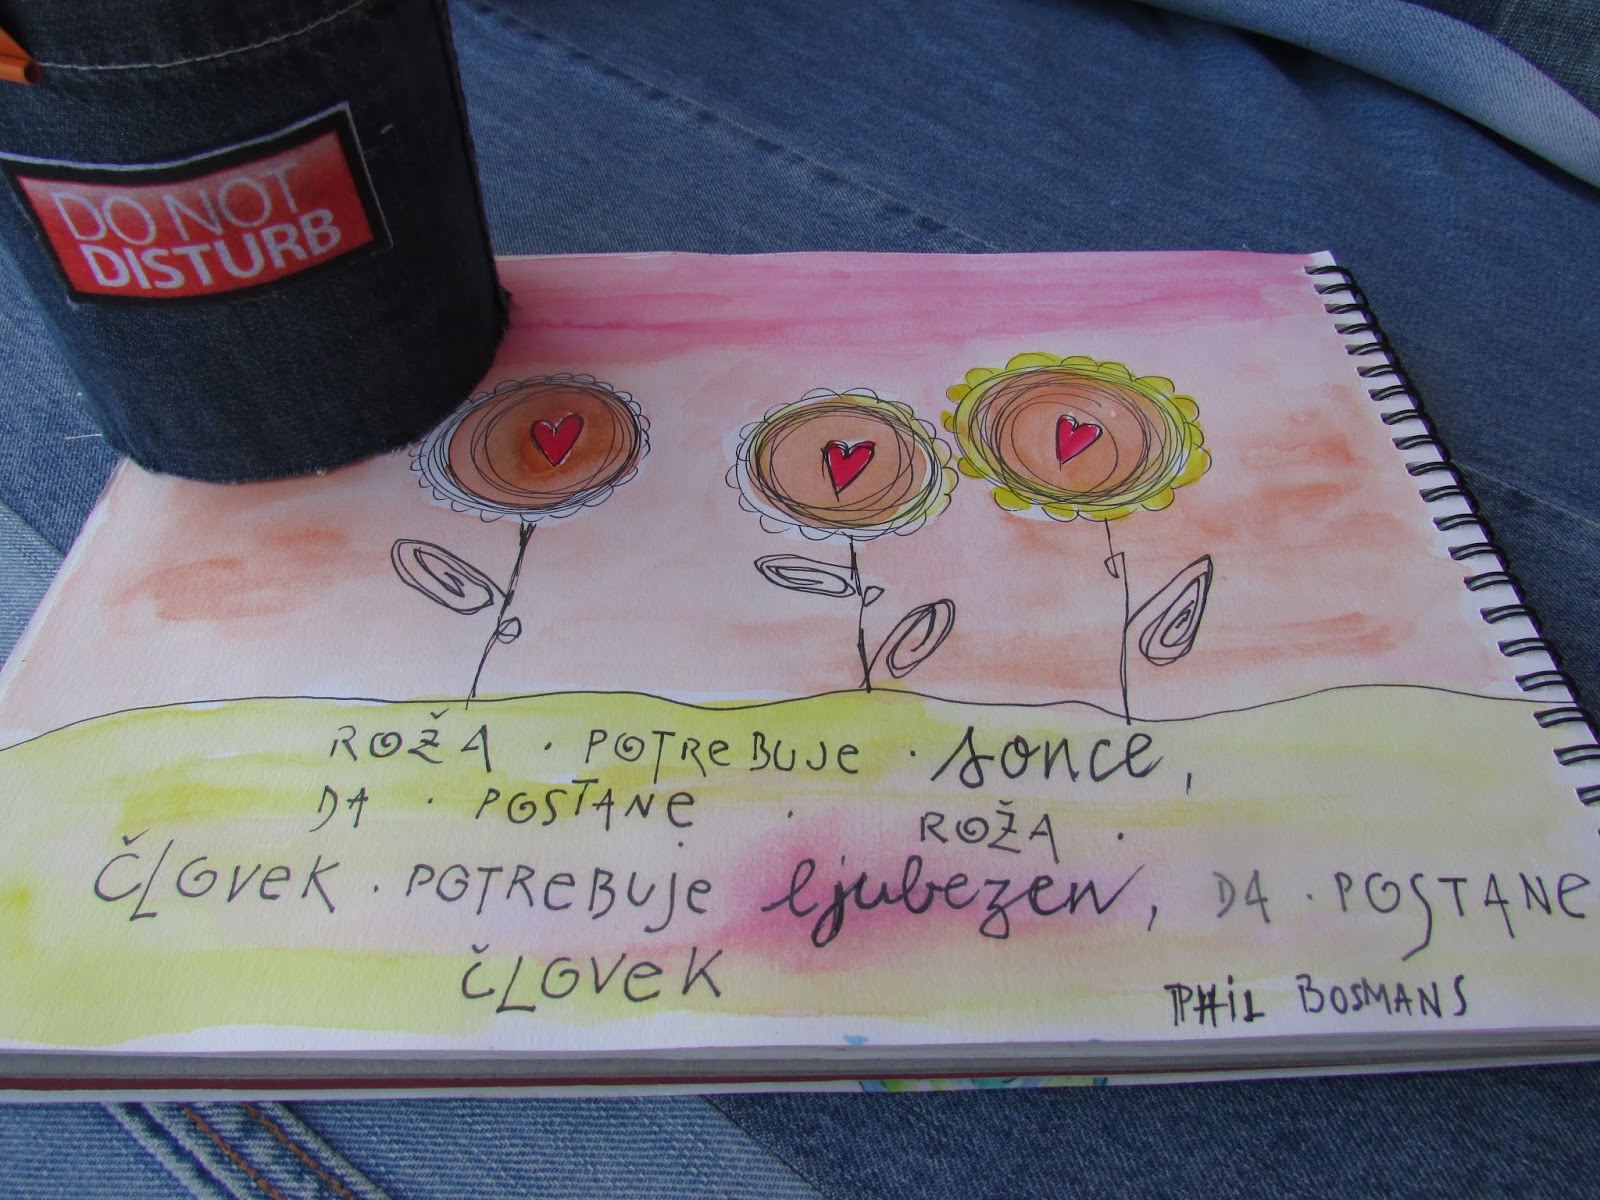 DO NOT
DISTURB
ROŽA · POTREBUJE · sonce,
DA · POSTANE · ROŽA ·
ČLOVEK · POTREBUJE ljubezen, DA · POSTANE
ČLOVEK
PHIL BOSMANS